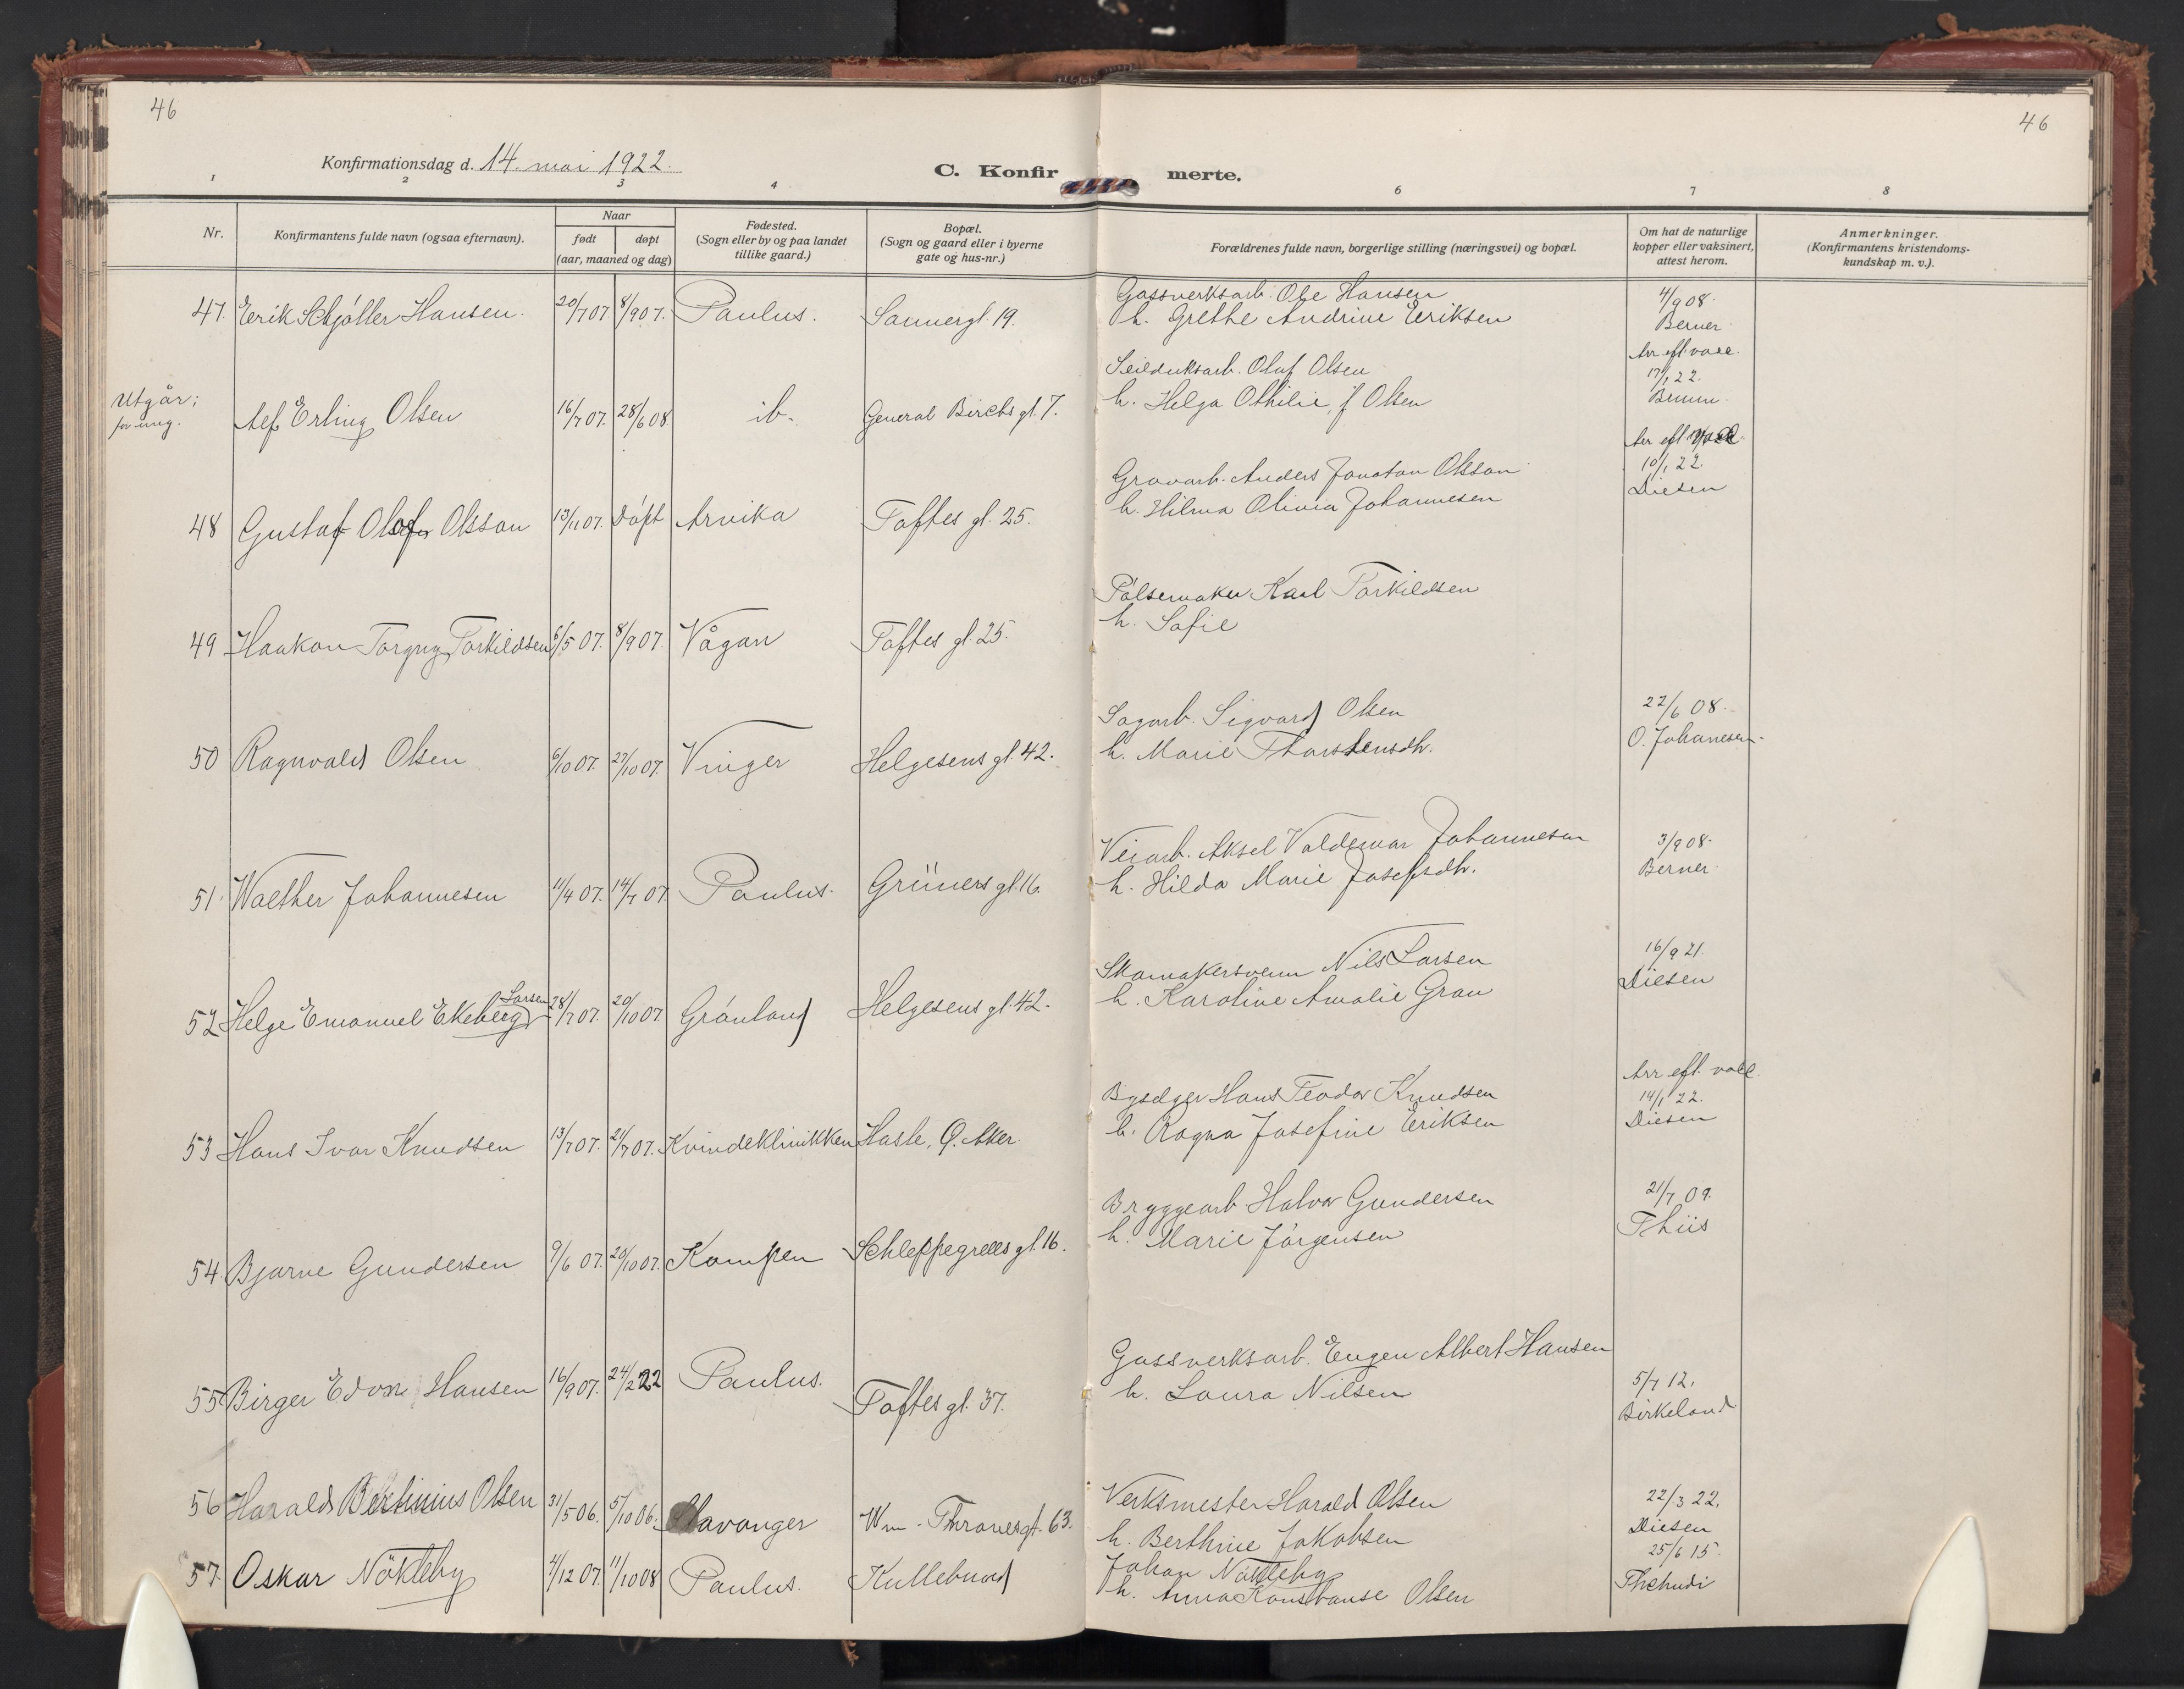 46
46
Konfirmationsdag d. 14. mai 1922.
C. Konfir merte.
1 2 3 4 6 7 8
Nr.
Konfirmantens fulde navn (ogsaa efternavn).
Naar
født døpt
(aar, maaned og dag)
Fødested.
(Sogn eller by og paa landet
tillike gaard.)
Bopæl.
(Sogn og gaard eller i byerne
gate og hus-nr.)
Forældrenes fulde navn, borgerlige stilling (næringsvei) og bopæl.
Om hat de naturlige
kopper eller vaksinert,
attest herom.
Anmerkninger.
(Konfirmantens kristendoms-
kundskap m. v.).
47. Erik Schjøller Hansen. 20/7 07. 8/9 07. Paulus. Sannergt. 19.
Gassverksarb. Ole Hansen
h. Grethe Andrine Eriksen
4/9 08.
Berner
Utgår;
for ung.
Alf Erling Olsen 16/7 07. 28/6 08. ib. General Birchs gt. 7.
Seilduksarb. Oluf Olsen
h. Helga Othilie, f Olsen
Arr eft. vacc.
17/1 22.
48 Gustaf Olof Olsson 13/11 07. Døpt Arvika Toftes gt. 25.
Gravarb. Anders Jonatan Olsson
h. Hilma Olivia Johannesen
Arr eft. vacc.
10/1 22.
Diesen
49 Haakon Torgny Torkildsen 6/5 07. 8/9 07. Vågan Toftes gt. 25.
Pølsemaker Karl Torkildsen
h. Sofie
50 Ragnvald Olsen 6/10 07. 27/10 07. Vinger Helgesens gt. 42.
Sagarb. Sigvard Olsen
h. Marie Thorstensdtr.
22/6 08.
O. Johanesen.
51. Walther Johannesen 11/4 07. 14/7 07. Paulus. Grüners gt. 16.
Veiarb. Aksel Valdemar Johannesen
h. Hilda Marie Josefsdtr.
3/9 08.
Berner.
52 Helge Emanuel Ekeberg Larsen 28/7 07. 20/10 07. Grønland Helgesens gt. 42.
Skomakersvenn Nils Larsen
h. Karoline Amalie Grau
16/9 21.
Diesen
53 Hans Ivar Knudsen 13/7 07. 21/7 07. Kvindeklinikken Hasle, Ø. Aker.
Byselger Hans Teodor Knudsen
h. Ragna Josefine Eriksen
Arr eft. vacc.
14/1 22.
Diesen
54. Bjarne Gundersen 9/6 07. 20/10 07. Kampen Schleppegrells gt. 16.
Bryggearb Halvor Gundersen
h. Marie Jørgensen
21/7 09.
Thiis
55 Birger Edvin Hansen 16/9 07. 24/2 22 Paulus. Toftes gt. 37.
Gassverksarb. Eugen Albert Hansen
h. Laura Nilsen
5/7 12.
Birkeland
56 Harald Bertinius Olsen 31/5 06. 5/10 06. Stavanger Wm. Thranesgt. 63.
Verksmester Harald Olsen
h. Berthine Jakobsen
22/3 22.
Diesen
57. Oskar Nökleby 4/12 07. 11/10 08 Paulus. Kullebund
Johan Nökleby
h. Anna Konstanse Olsen
25/6 15.
Thchudi